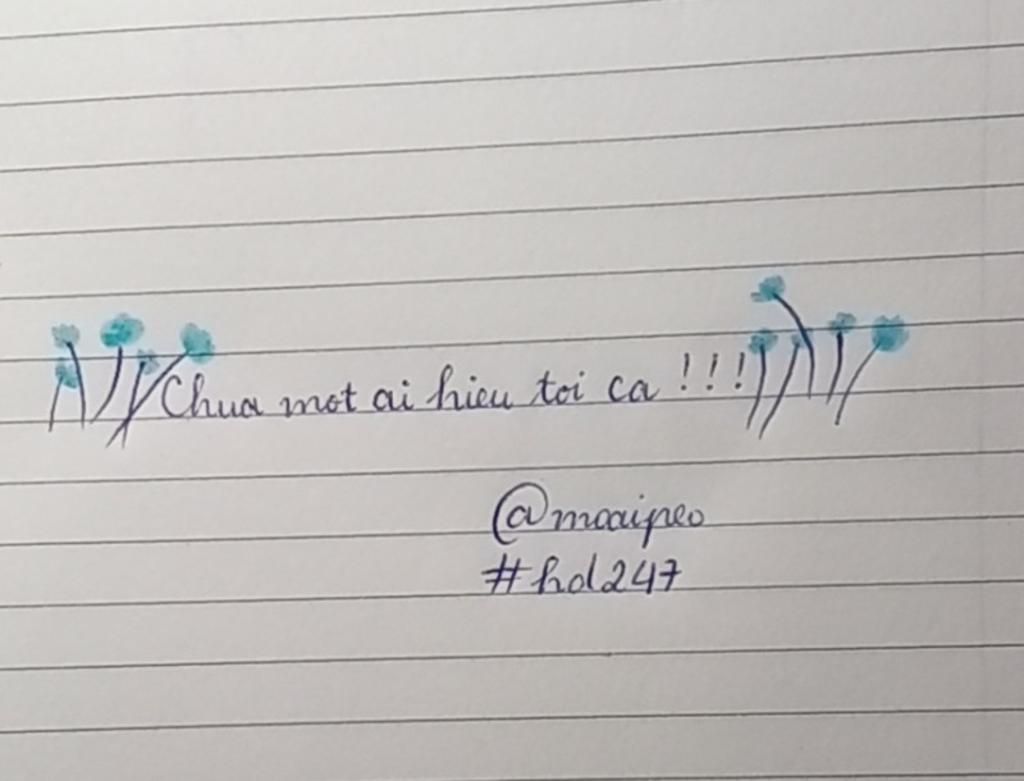 Chua mot ai hieu toi ca !!!
@maaipeo
#hd247